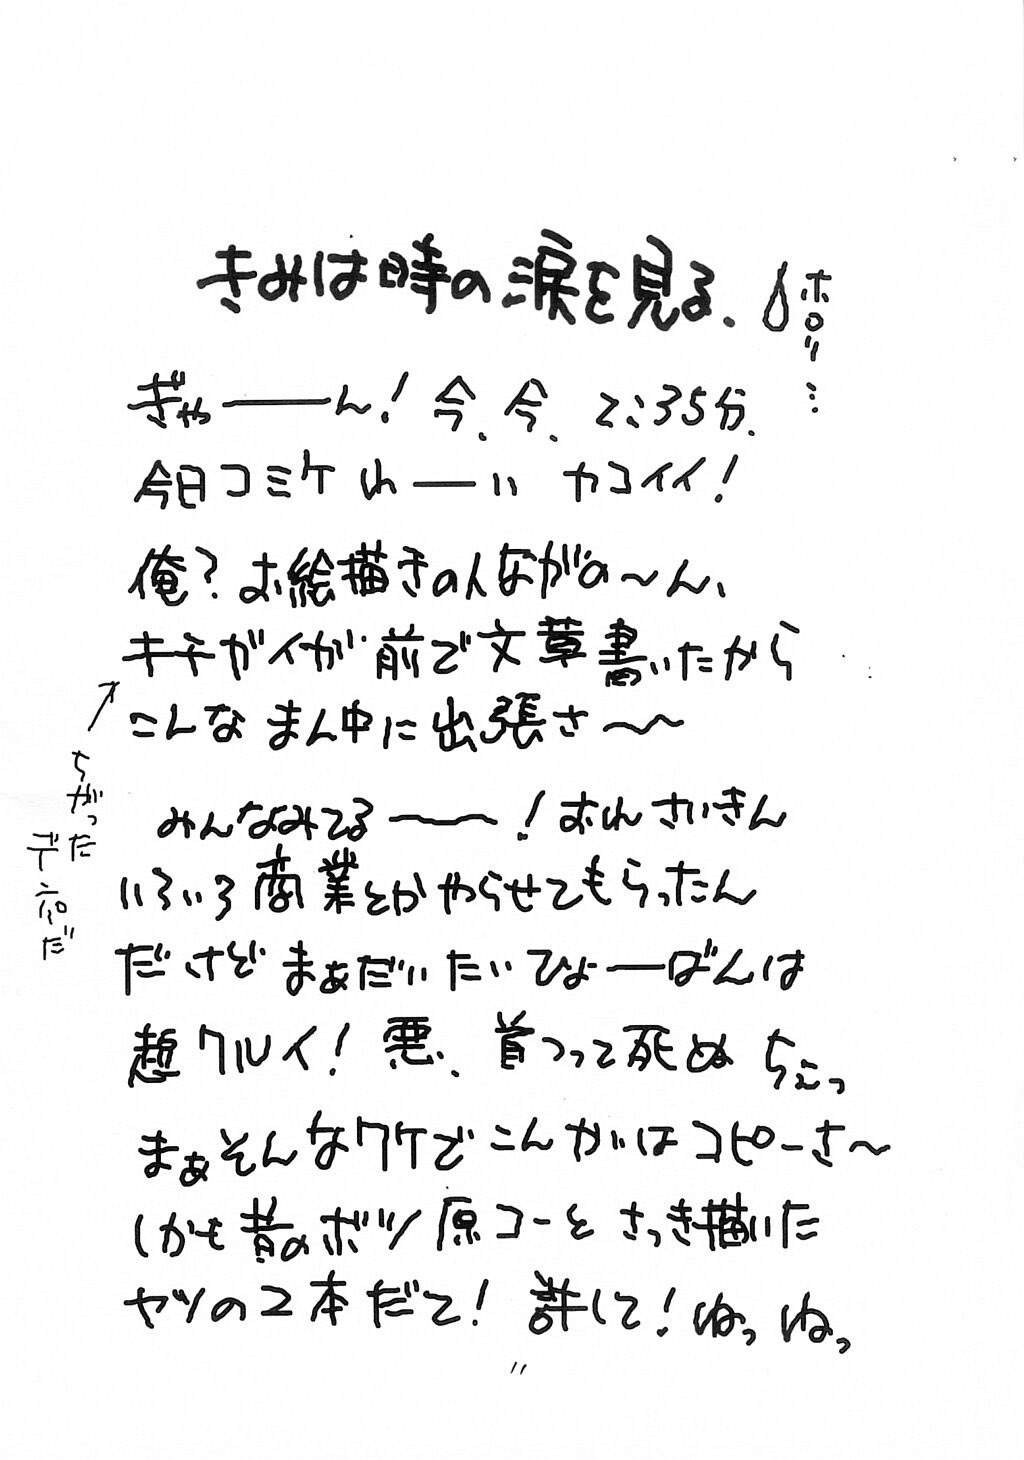 きみは時の涙を見る、
ポロリ…
ぎゃーーん! 今、今、2:35分、
今日コミケ れーい カコイイ!
俺? お絵描きの人ながの〜ん、
キチガイが前で文章書いたから
こんな まん中に出張さ〜〜
ちがった
デムパだ
みんなみてる〜〜! おれ さいきん
いろいろ商業とかやらせてもらったん
ださぞ まぁだいたい ひょーばんは
超ワルイ! 悪、首つって死ぬ ちぇっ
まぁそんなワケでこんかいはコピーさ〜
しかも昔のボツ原コーと さっき描いた
ヤツの2本だて! 許して! ねっ ねっ
11